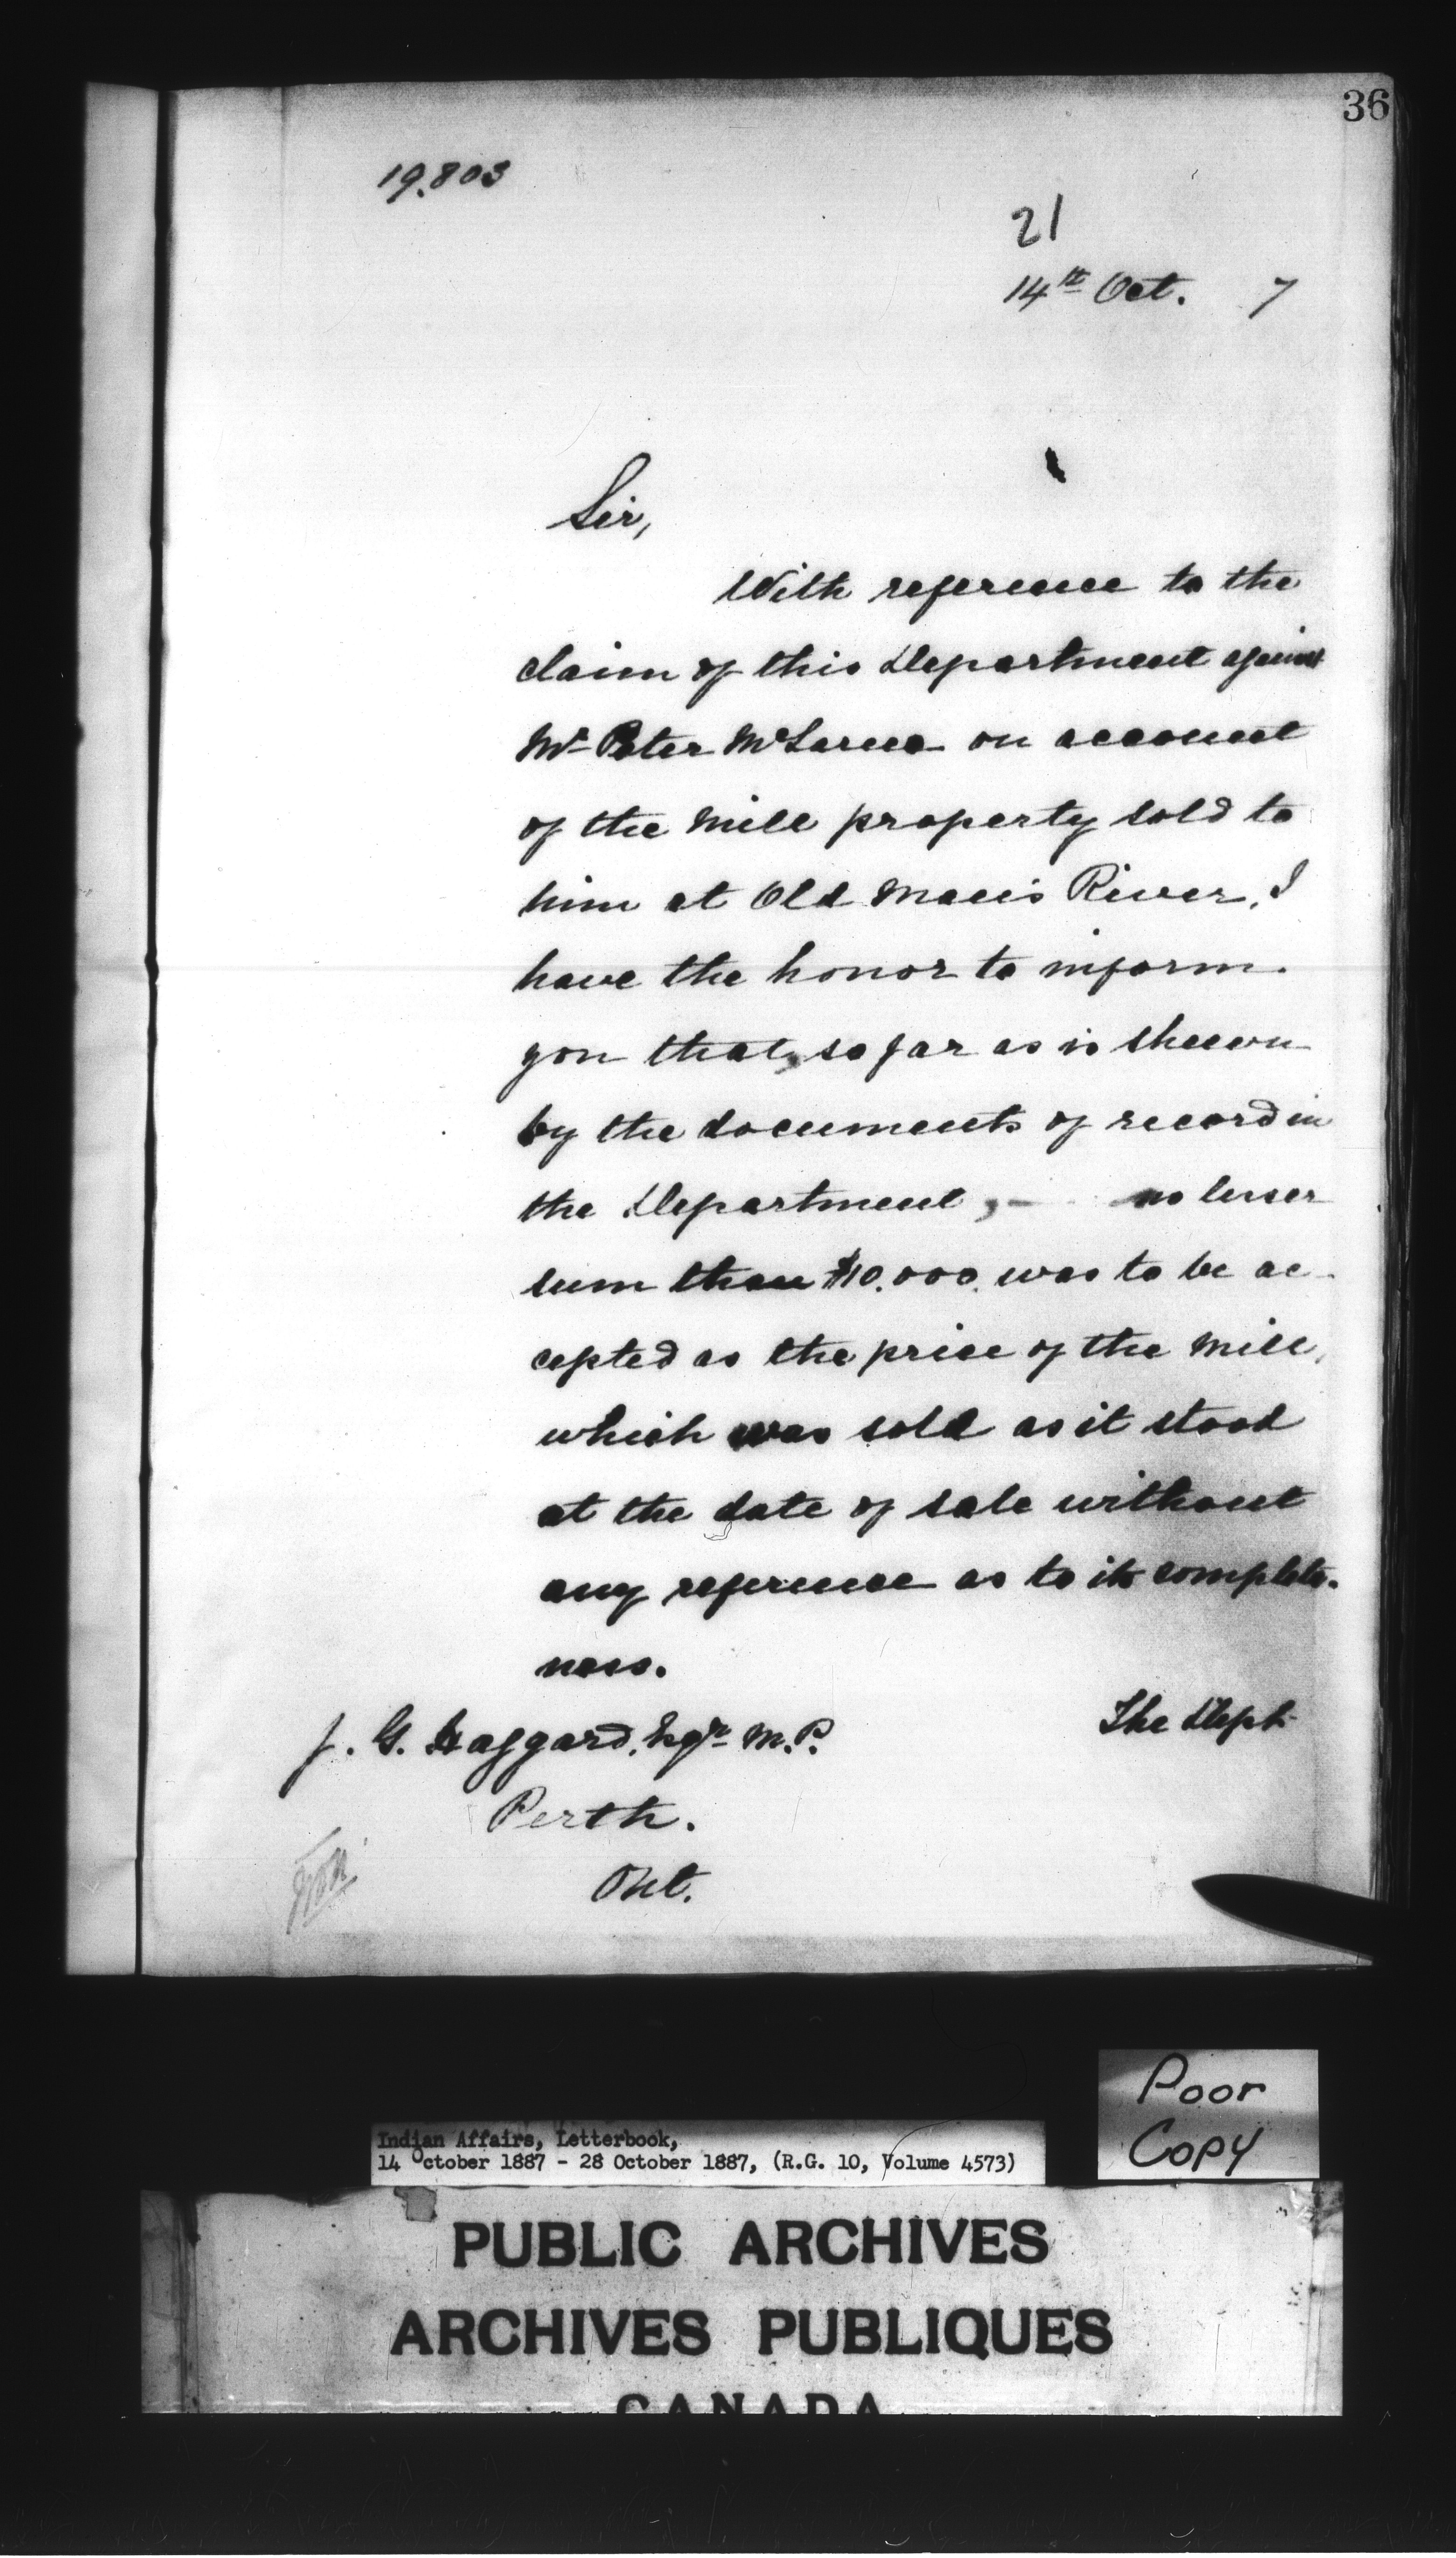 36
19.803
21
14th Oct. 7
Sir,
With reference to the
claim of this Department against
Mr Peter McLaren on account
of the Mill property sold to
him at Old Man's River, I
have the honor to inform
you that, so far as is shewn
by the documents of record in
the Department, no lesser
sum than $10.000. was to be ac-
cepted as the price of the Mill,
which was sold as it stood
at the date of sale without
any reference as to its complete-
ness.
The Dept.
J. G. Haggard, Esqre M.P.
Perth.
Ont.
Poor
Copy
Indian Affairs, Letterbook,
14 October 1887 - 28 October 1887, (R.G. 10, Volume 4573)
PUBLIC ARCHIVES
ARCHIVES PUBLIQUES
CANADA